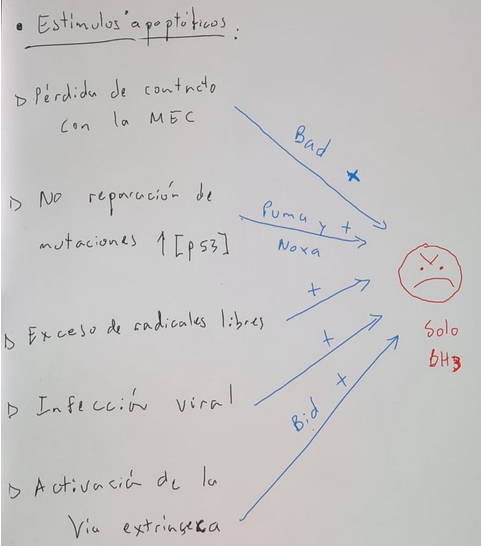 • Estímulos apoptóticos:
▷ Pérdida de contacto
con la MEC
Bad +
▷ No reparación de
mutaciones ↑[p53]
Puma y +
Noxa
▷ Exceso de radicales libres
+
▷ Infección viral
+
▷ Activación de la
Vía extrínseca
Bid +
Solo
BH3